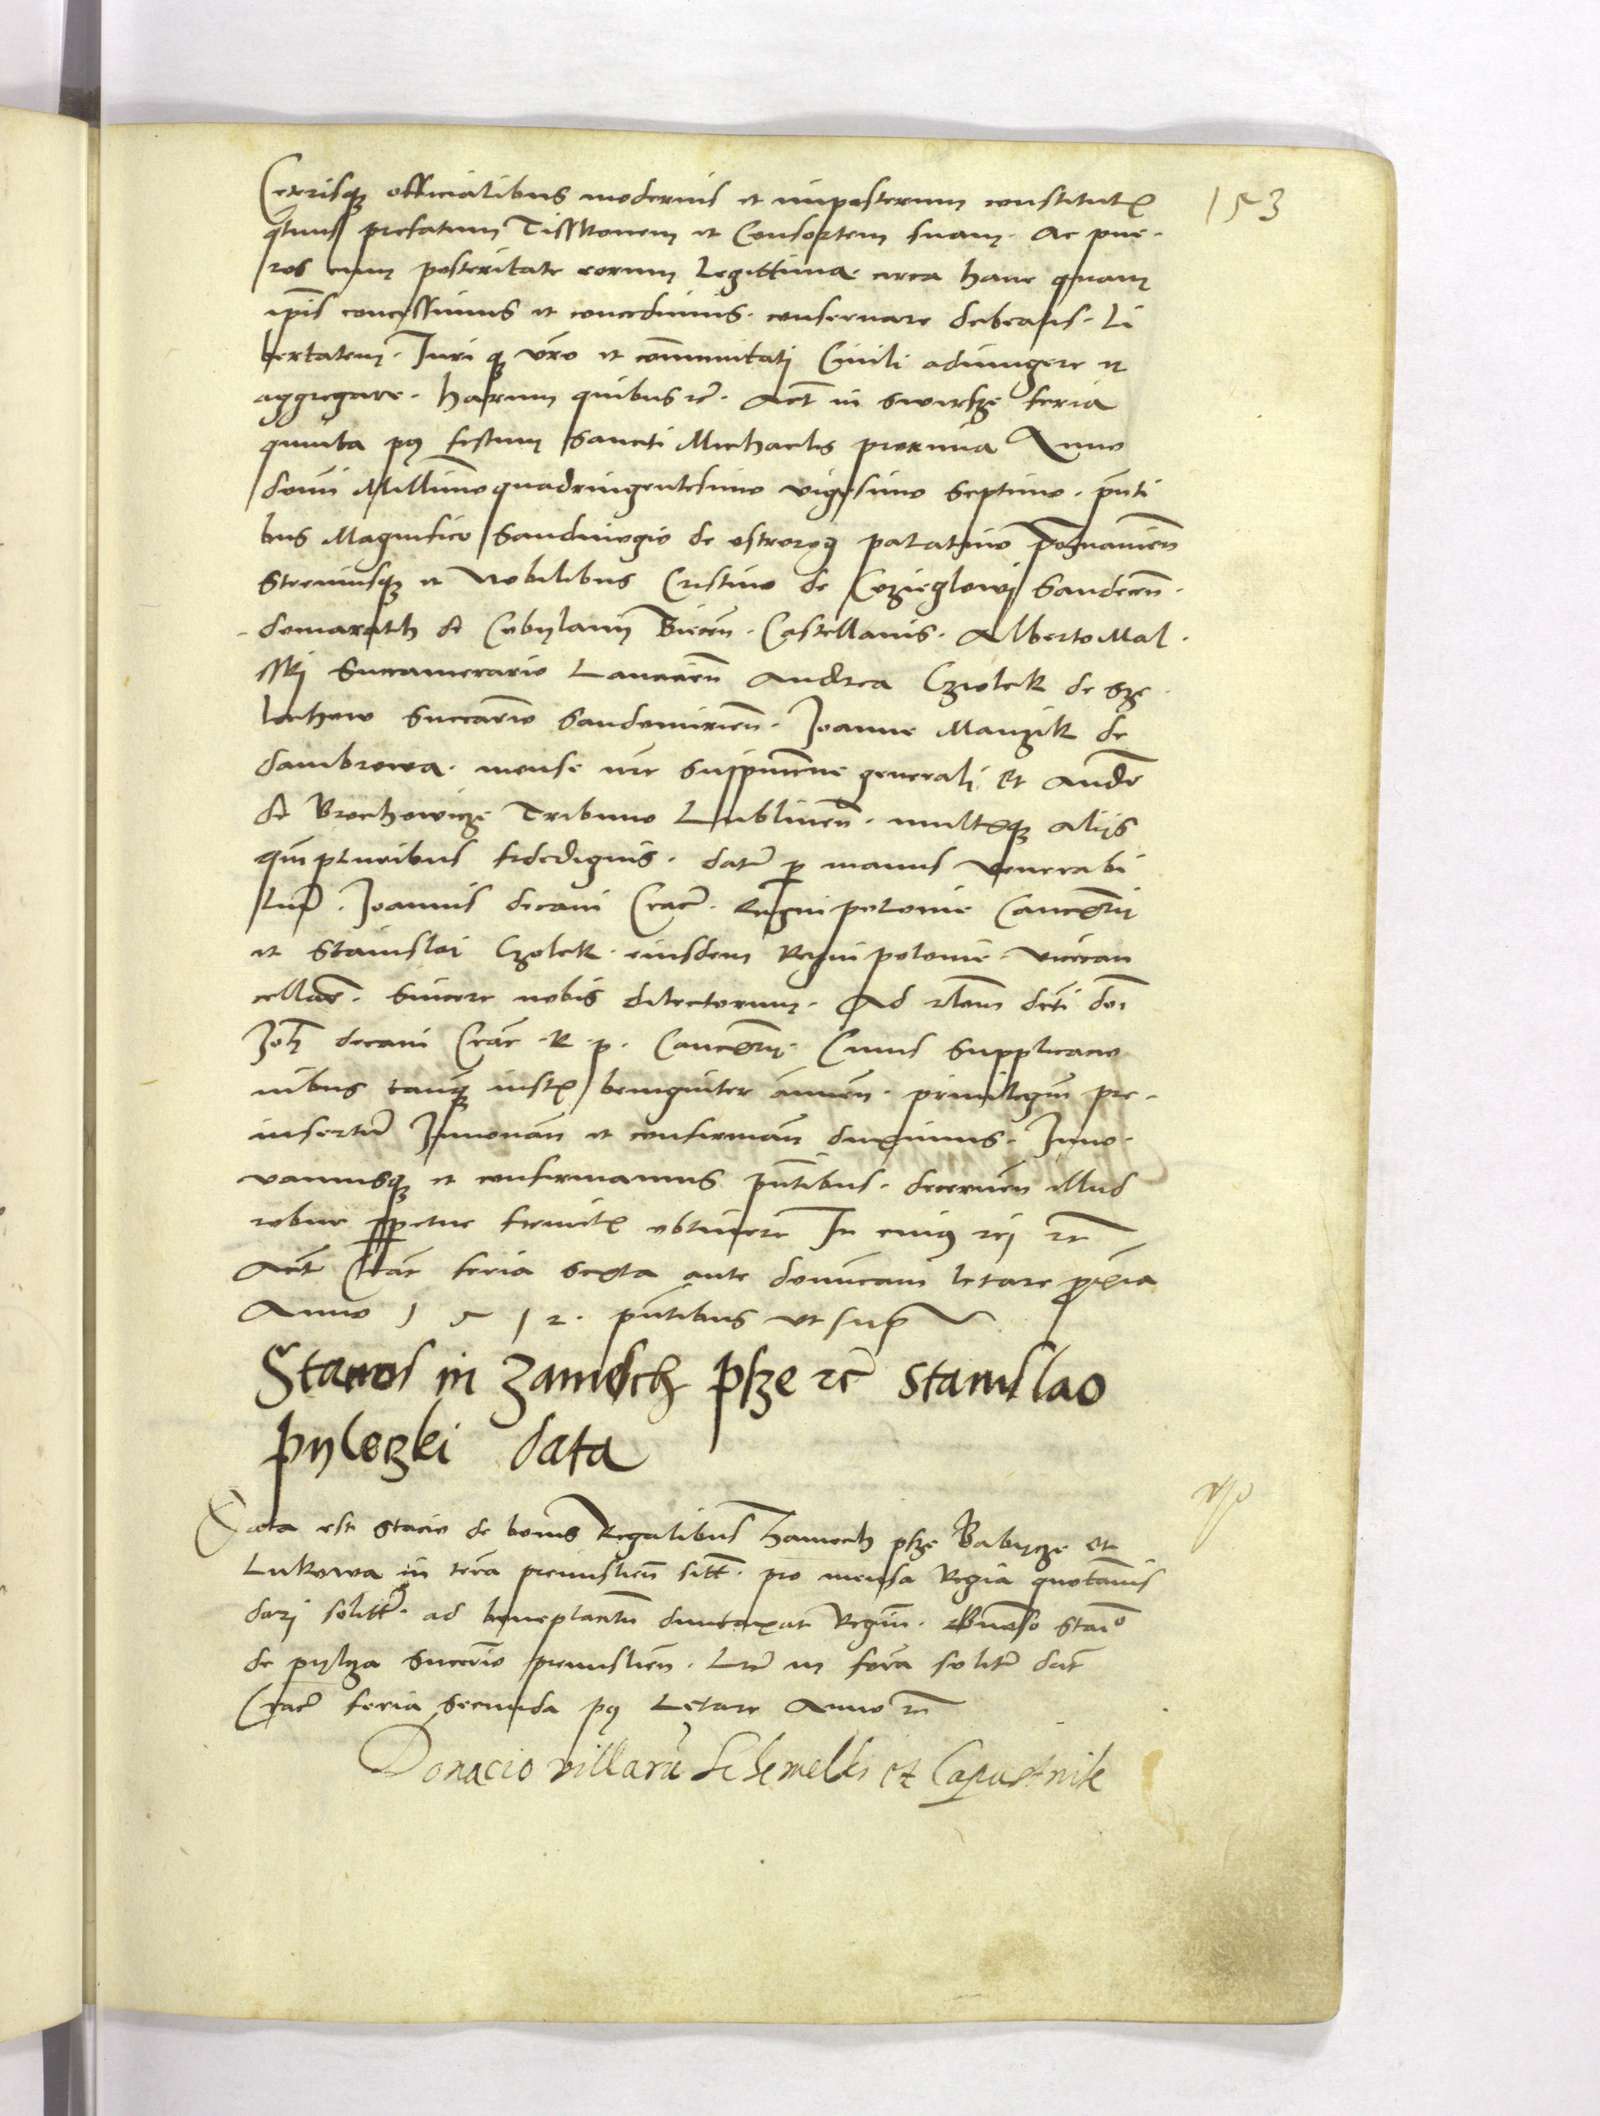 Ceterisque officialibus modernis et imposterum constitut(is)
q(ua)t(enus) prefatum Tisskonem et Consortem suam. Ac pue-
ros cum posteritate eorum legittima. circa hanc quam
ip(s)is concessimus et concedimus. conservare debeatis. Li
bertatem. Juri q(ue) v(est)ro et com(m)unitati Civili adiungere et
aggregare. harum quibus etc. Act(um) in feria
quinta p(os)t festum Sancti Michaelis proxima Anno
domini Millesimo quadringentesimo vigesimo septimo. p(rese)nti
bus Magnifico Sandivogio de ostrorog palatino Poznanien
Strenuisque et Nobilibus Cristino de Cozieglowi Sandecen.
domarath de Cobylany Biecen. Castellanis. Alberto Mal.
sski Succamerario Lancicien Andrea Cziolek de Sze
lechow Succam(er)ario Sandomirien. Joanne Manzik de
dambrowa. mense n(ost)re generali et Andrea
de Brochowicze Tribuno Lublinen. multisque aliis
quipluribus fidedignis. datum per manus venerabi
lium. Joannis decani Crac. Regni polonie Cancellarii
et Stanislai Czolek. eiusdem Regni polonie. vicecan
cellarii. Sincere nobis dilectorum. Ad r(e)l(ati)o(n)em d(i)c(t)i do(mi)ni
Joh(annis) decani Crac. R. p. Cancellarii. Cuius supplicacio
nibus tamq(uam) iustis benigniter annuen. privilegium pre-
insertum Innovan et confirman duximus. Inno-
vamusque et confirmamus p(rese)ntibus. decernen illud
robur perpetue firmitatis obtinere In cuius rei etc
Act(um) Crac feria sexta ante dominicam letare proxima
Anno 1512. p(rese)ntibus ut supra
Stacio in Zamosch psze etc Stanislao
pyleczki data
Data est stacio de bonis Regalibus Zamoch psze Babycze et
Lukowa in terra premislien sitt. pro mensa Regia quotannis
dari solitt. ad beneplacitum duntaxat Regium. Generoso Stan(isla)o
de pylcza Succ(am)er(ar)io premislien. L(itte)re in forma solit(a) dat
Crac feria secunda p(os)t Letare Anno etc
Donacio villarum et Capustnik
153